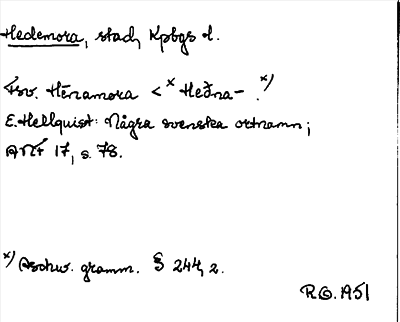 Hedemora, stad, Kpbgs l.
Fsv. Hēnamora < ˣ Heðna- . ˣ)
E. Hellquist: Några svenska ortnamn;
ANF 17, s. 78.
ˣ) Aschw. gramm. § 244, 2.
R.G. 1951